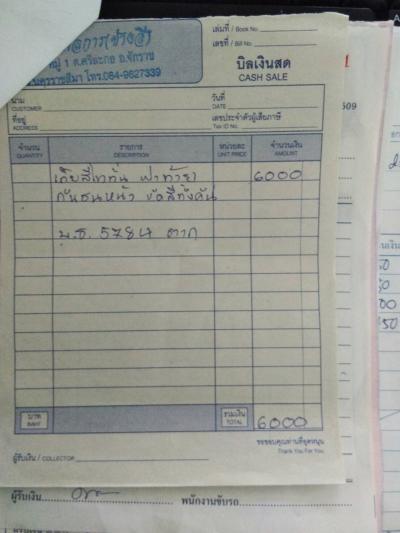 หมู่ 1 ต.ศรีละกอ อ.จักราช
นครราชสีมา โทร.084-9627339
เล่มที่ / Book No.
เลขที่ / Bill No.
บิลเงินสด
CASH SALE
นาม
CUSTOMER
วันที่
DATE
ที่อยู่
ADDRESS
เลขประจำตัวผู้เสียภาษี
Tax ID No.
จำนวน
QUANTITY
รายการ
DESCRIPTION
หน่วยละ
UNIT PRICE
จำนวนเงิน
AMOUNT
เก็บสี ฝาท้าย 6000
กันชนหน้า ขัดสีทั้งคัน
5784 ตาก
บาท
BAHT
รวมเงิน
TOTAL
6000
ผู้รับเงิน / COLLECTOR
ขอขอบคุณท่านที่อุดหนุน
Thank You For You
ผู้รับเงิน
พนักงานขับรถ
509